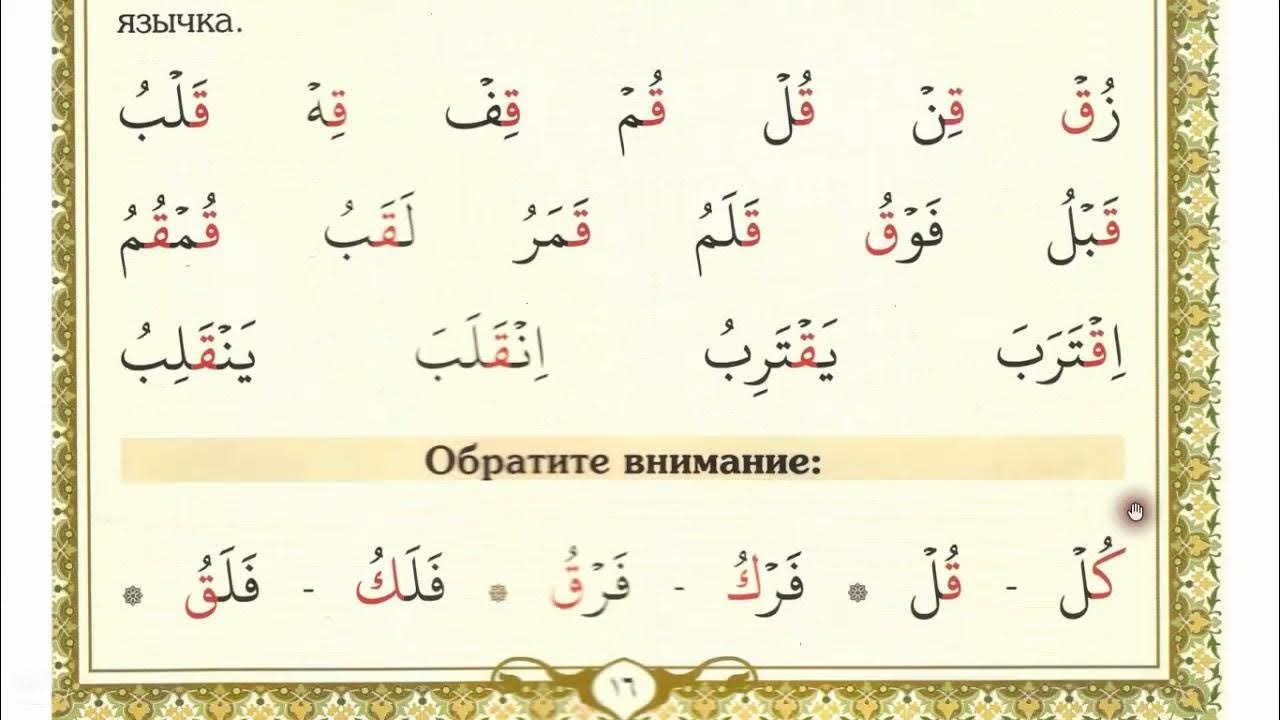 язычка.
زُقْ قِنْ قُلْ قُمْ قِفْ قِهْ قَلْبُ
قَبْلُ فَوْقُ قَلَمُ قَمَرُ لَقَبُ قُمْقُمُ
اِقْتَرَبَ يَقْتَرِبُ اِنْقَلَبَ يَنْقَلِبُ
Обратите внимание:
كُلْ - قُلْ ۞ فَرْكُ - فَرْقُ ۞ فَلَكُ - فَلَقُ ۞
١٦